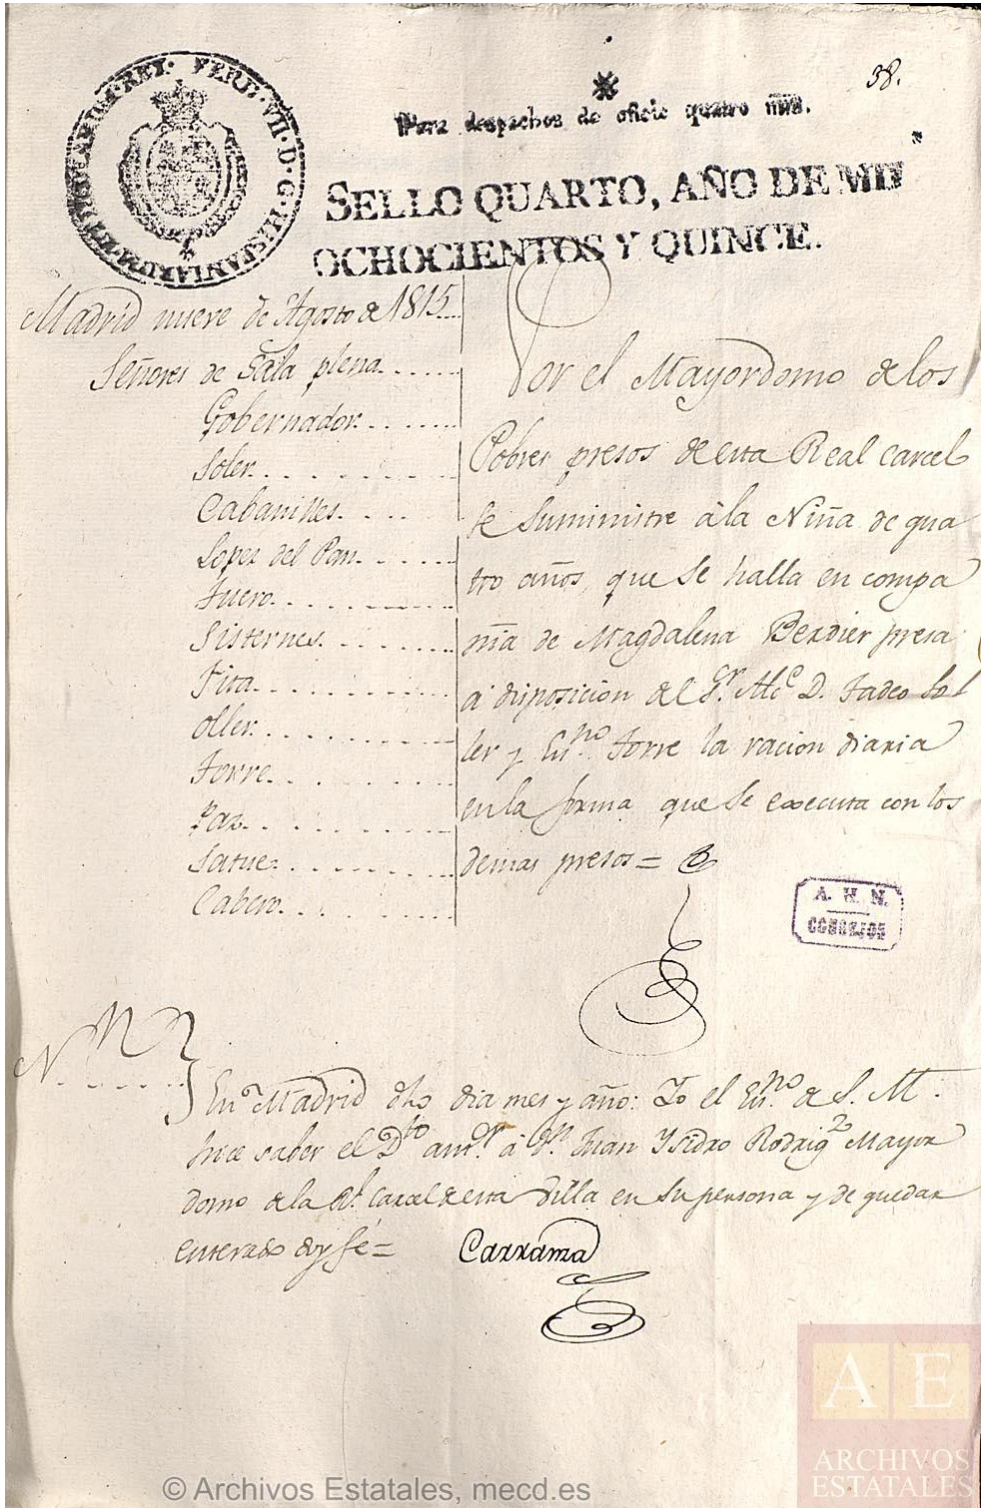 38.
Para despachos de oficio quatro mrs.
SELLO QUARTO, AÑO DE MIL
OCHOCIENTOS Y QUINCE.
FERD. VII. D. G. HISPANIARUM ET INDIARUM REX.
Madrid nueve de Agosto de 1815
Señores de Sala plena
Gobernador
Soler
Cabanilles
Lopez del Pan
Fuero
Sisternes
Fita
Oller
Torre
Paz
Satue
Cabero
Por el Mayordomo de los
Pobres presos de esta Real Carcel
se suministre à la Niña de qua
tro años, que se halla en compa
ñia de Magdalena Berdier presa
á disposicion del Sr. Alce D. Tadeo So
ler y Esno. Torre la racion diaria
en la forma que se executa con los
demas presos =
A. H. N.
CONSEJOS
En Madrid dho dia mes y año: Yo el Esno. de S. M.
hice saber el Dto antr. à Dn. Juan Ysidro Rodrigz Mayor
domo de la Rl. Carcel de esta Villa en su persona y de quedar
enterado doy fe =
Carranza
AE
ARCHIVOS
ESTATALES
© Archivos Estatales, mecd.es